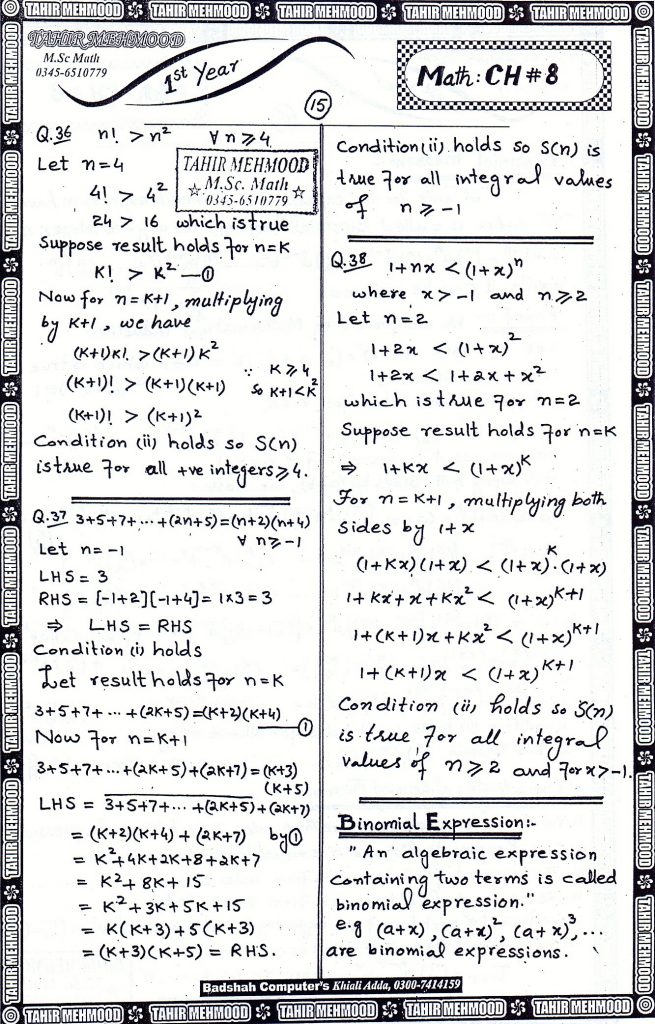 TAHIR MEHMOOD TAHIR MEHMOOD TAHIR MEHMOOD TAHIR MEHMOOD TAHIR MEHMOOD
TAHIR MEHMOOD
M.Sc Math
0345-6510779
1st Year
Math: CH # 8
15
Q.36 n! > n² ∀ n ≥ 4
Let n = 4
TAHIR MEHMOOD
M.Sc. Math
0345-6510779
4! > 4²
24 > 16 which is true
Suppose result holds for n = K
K! > K² — ①
Now for n = K+1, multiplying
by K+1, we have
(K+1)K! > (K+1)K²
(K+1)! > (K+1)(K+1) ∵ K ≥ 4 so K+1 < K²
(K+1)! > (K+1)²
Condition (ii) holds so S(n)
is true for all +ve integers ≥ 4.
Q.37 3+5+7+ ... +(2n+5) = (n+2)(n+4)
∀ n ≥ -1
Let n = -1
LHS = 3
RHS = [-1+2][-1+4] = 1×3 = 3
⇒ LHS = RHS
Condition (i) holds
Let result holds for n = K
3+5+7+ ... +(2K+5) = (K+2)(K+4) — ①
Now for n = K+1
3+5+7+ ... +(2K+5)+(2K+7) = (K+3)
(K+5)
LHS = 3+5+7+ ... +(2K+5)+(2K+7)
= (K+2)(K+4) + (2K+7) by ①
= K²+4K+2K+8+2K+7
= K²+8K+15
= K²+3K+5K+15
= K(K+3)+5(K+3)
= (K+3)(K+5) = RHS.
Condition (ii) holds so S(n) is
true for all integral values
of n ≥ -1
Q.38 1+nx < (1+x)ⁿ
where x > -1 and n ≥ 2
Let n = 2
1+2x < (1+x)²
1+2x < 1+2x+x²
which is true for n = 2
Suppose result holds for n = K
⇒ 1+Kx < (1+x)^K
For n = K+1, multiplying both
sides by 1+x
(1+Kx)(1+x) < (1+x)^K.(1+x)
1+Kx+x+Kx² < (1+x)^K+1
1+(K+1)x+Kx² < (1+x)^K+1
1+(K+1)x < (1+x)^K+1
Condition (ii) holds so S(n)
is true for all integral
values of n ≥ 2 and for x > -1.
Binomial Expression:-
"An algebraic expression
containing two terms is called
binomial expression."
e.g (a+x), (a+x)², (a+x)³, ...
are binomial expressions.
Badshah Computer's Khiali Adda, 0300-7414159
TAHIR MEHMOOD TAHIR MEHMOOD TAHIR MEHMOOD TAHIR MEHMOOD TAHIR MEHMOOD